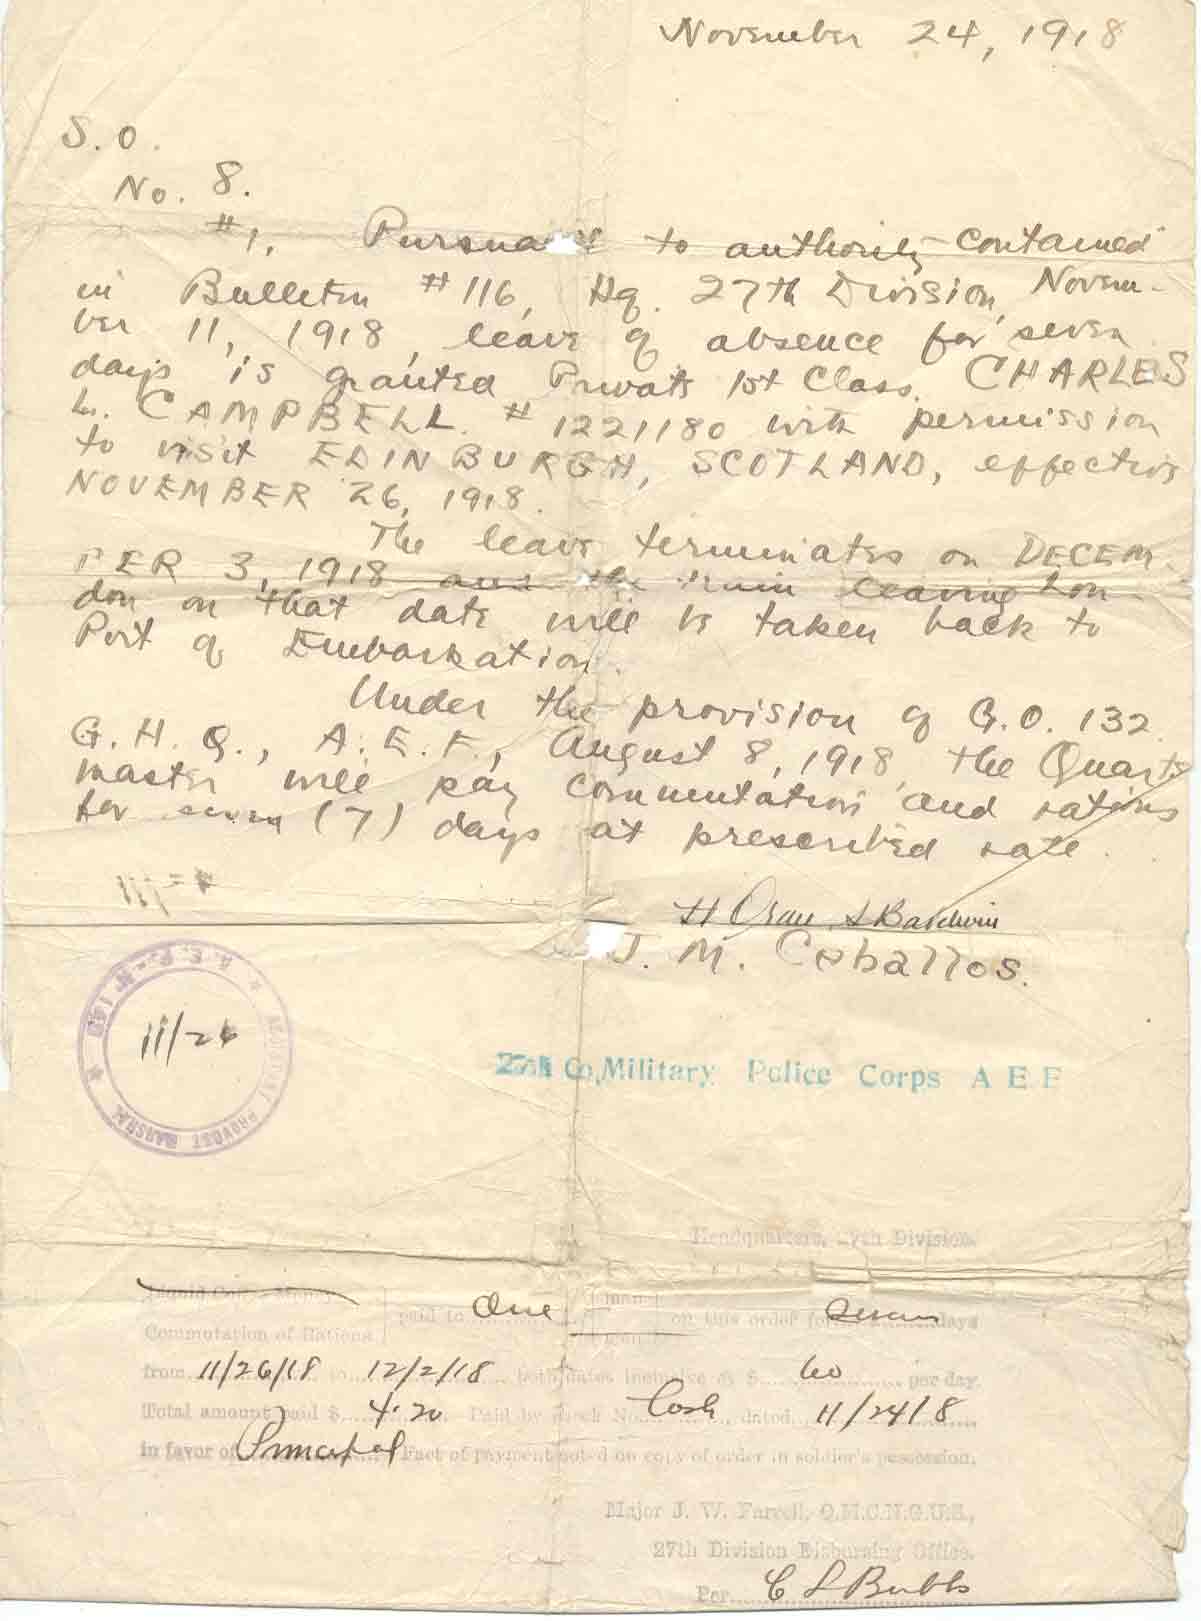 November 24, 1918
S. O.
No. 8.
#1. Pursuant to authority contained
in Bulletin #116, Hq. 27th Division, Novem-
ber 11, 1918, leave of absence for seven
days is granted Private 1st Class. CHARLES
L. CAMPBELL. #1221180 with permission
to visit EDINBURGH, SCOTLAND, effective
NOVEMBER 26, 1918.
The leave terminates on DECEM-
BER 3, 1918 and the train leaving Lon-
don on that date will be taken back to
Port of Embarkation.
Under the provision of G.O. 132
G.H.Q., A.E.F., August 8, 1918, the Quarter
master will pay commutation and rations
for seven (7) days at prescribed rate.
Baldwin
J. M. Ceballos.
A.E.F. - ASSISTANT PROVOST MARSHAL
11/26
27th Co, Military Police Corps A E F
Headquarters, 27th Division.
Commutation of Rations paid to One man on this order for Seven days
from 11/26/18 to 12/2/18 both dates inclusive at $ 60 per day.
Total amount paid $ 4.20 Paid by check No. Cash, dated 11/24/18
in favor of Principal Fact of payment noted on copy of order in soldier's possession.
Major J. W. Farrell, Q.M.C.N.G.U.S.,
27th Division Disbursing Office.
Per C L Bubbs